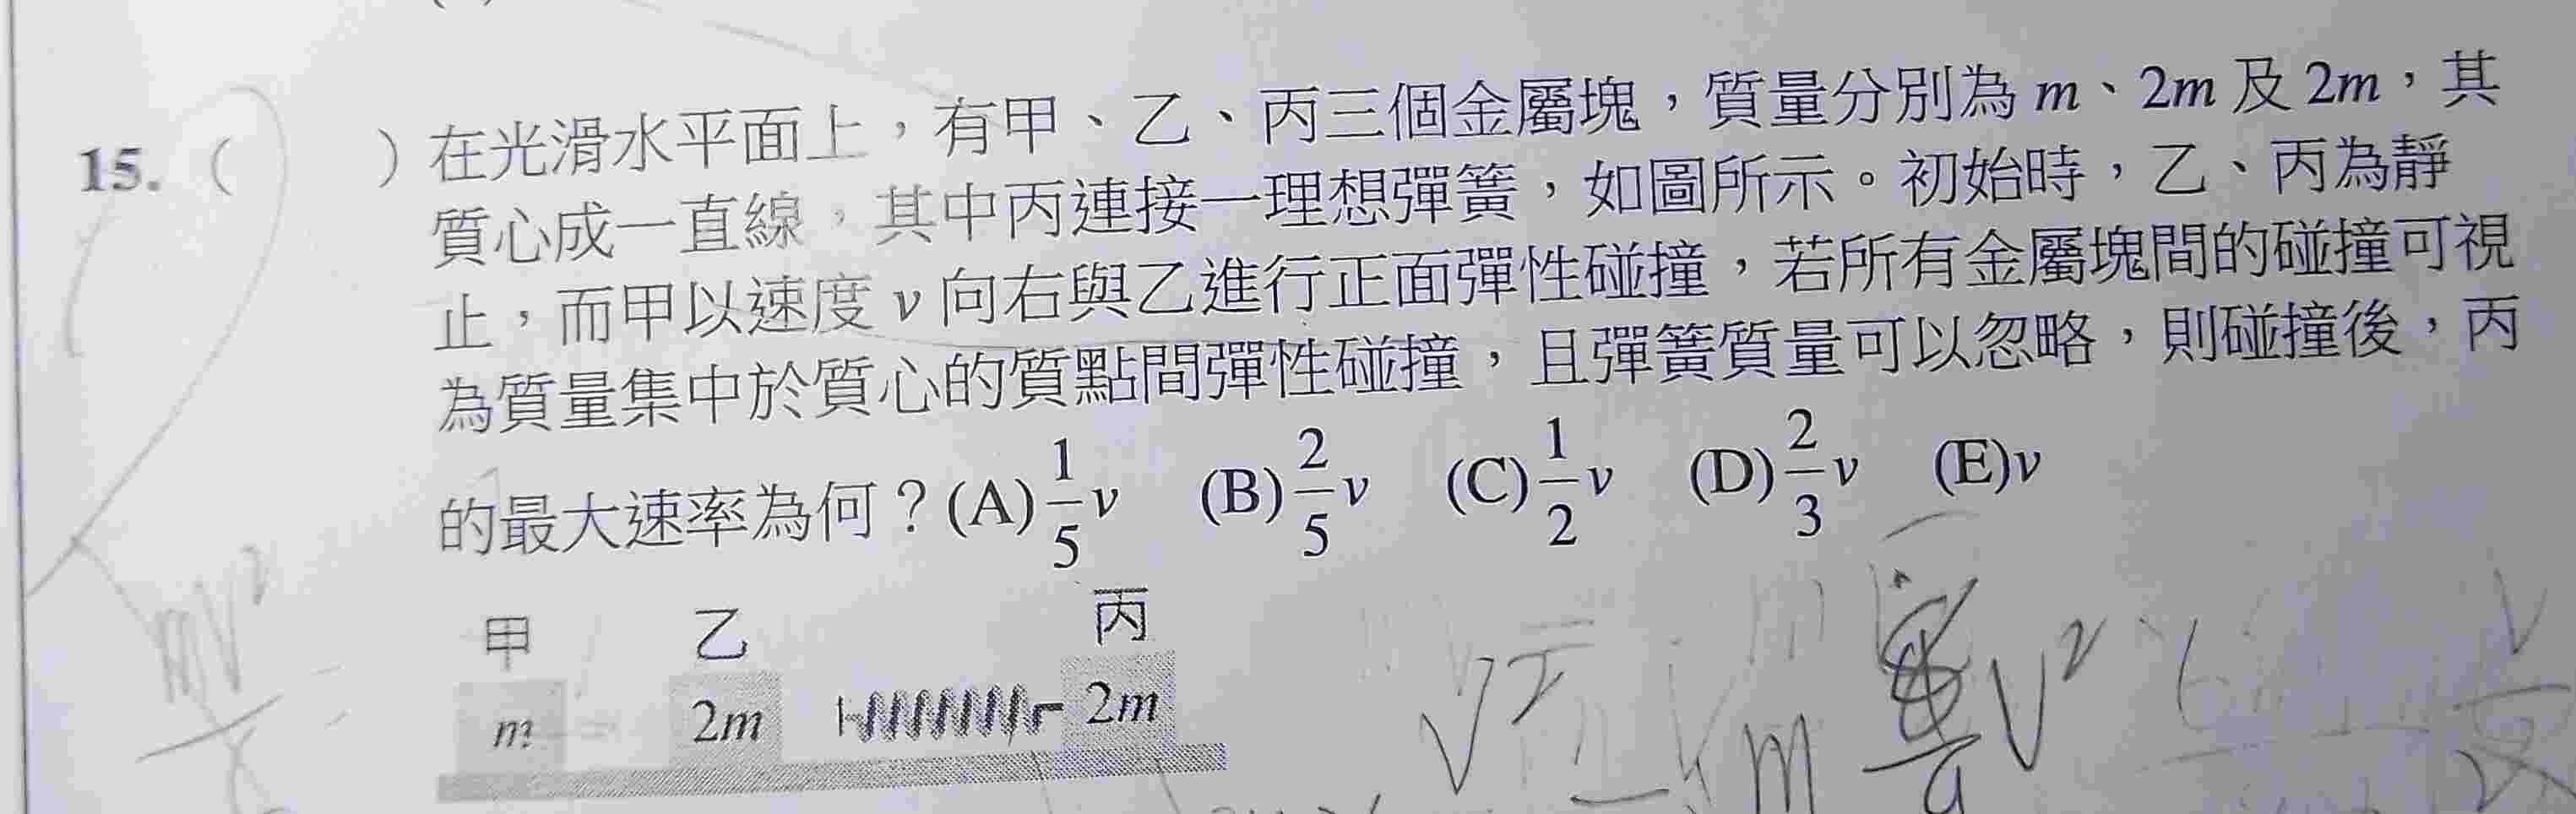 15. (　　) 在光滑水平面上，有甲、乙、丙三個金屬塊，質量分別為 m、2m 及 2m，其
質心成一直線，其中丙連接一理想彈簧，如圖所示。初始時，乙、丙為靜
止，而甲以速度 v 向右與乙進行正面彈性碰撞，若所有金屬塊間的碰撞可視
為質量集中於質心的質點間彈性碰撞，且彈簧質量可以忽略，則碰撞後，丙
的最大速率為何？(A) 1/5 v (B) 2/5 v (C) 1/2 v (D) 2/3 v (E) v
甲 乙 丙
m 2m 2m
mv²